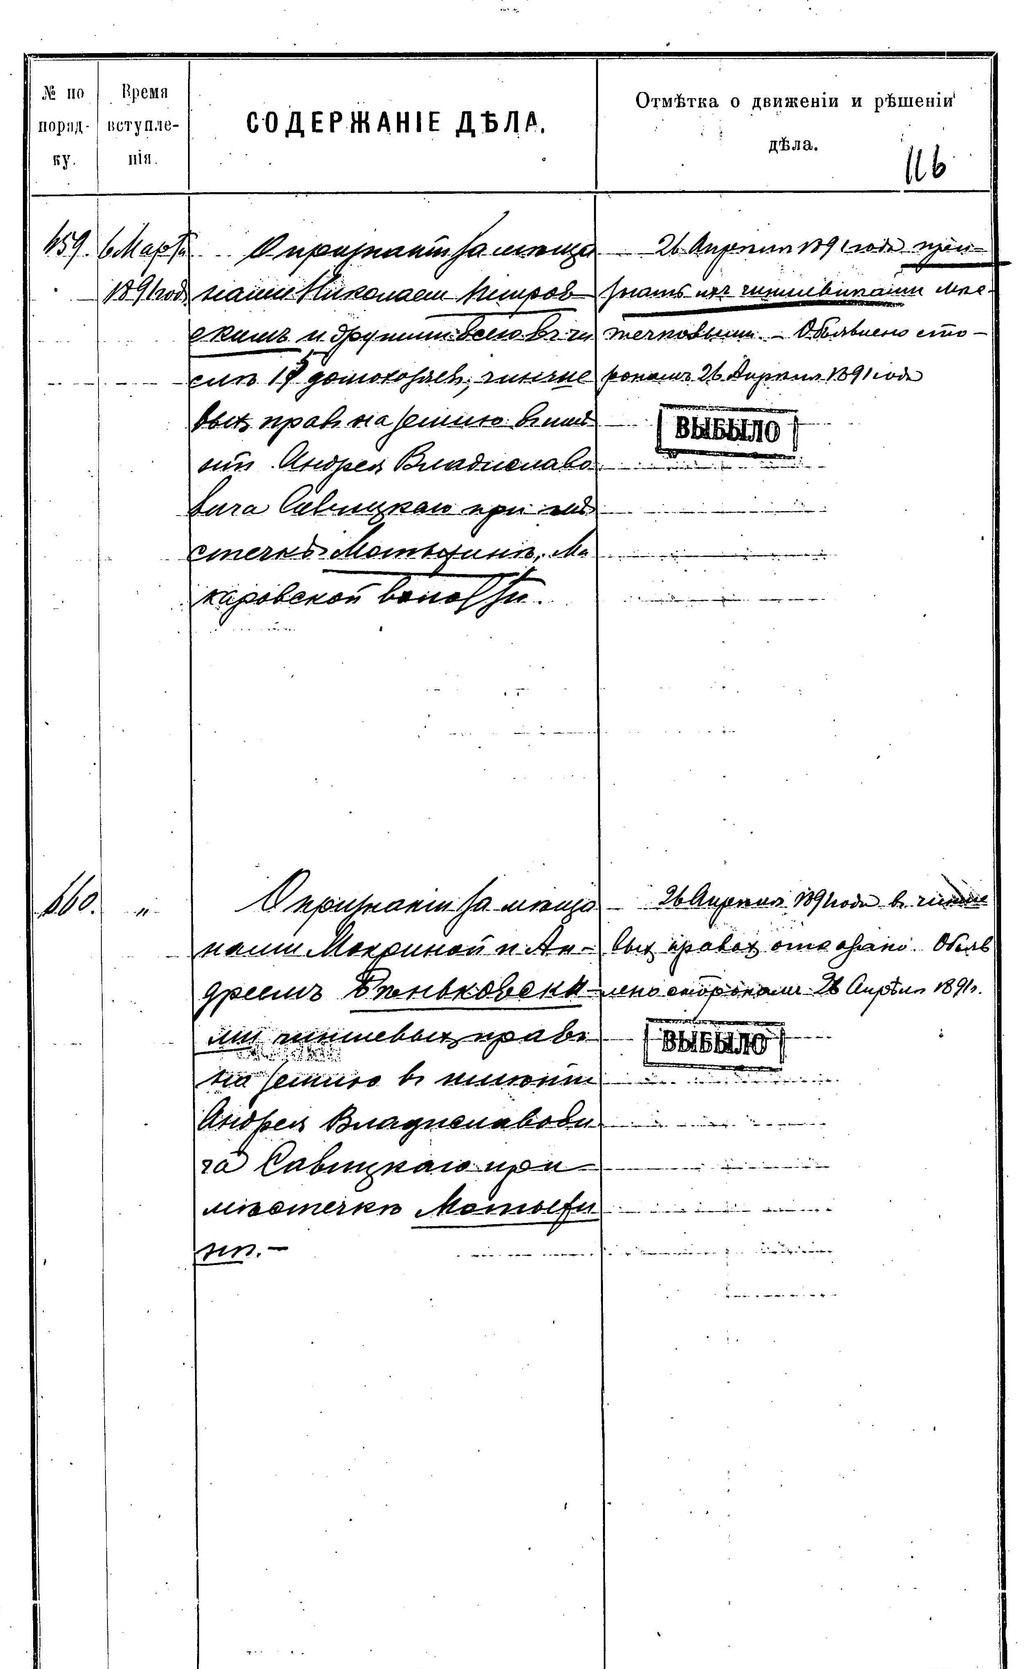 № по порядку.
Время вступленія.
СОДЕРЖАНІЕ ДѢЛА.
Отмѣтка о движеніи и рѣшеніи
дѣла.
116
459. 6 Марта
1891 год
О признаніи за мѣща
нами Николаем Петров
скимъ и другими всего въ чи
слѣ домохозяев, чинше
выхъ правъ на землю въ имѣ
ніи Андрея Владиславо
вича Савицкаго при мѣ
стечкѣ Мотыжинѣ, Ма
каровской волости.
26 Апрѣля 1891 года приз
знать ихъ чиншевиками мѣс
течковыми. – Объявлено сто–
ронамъ 26 Апрѣля 1891 года
ВЫБЫЛО
460. "
О признаніи за мѣща
нами Мокриной и Ан–
дреемъ Бѣньковски
ми чиншевыхъ правъ
на землю въ имѣніи
Андрея Владиславови
ча Савицкаго при
мѣстечкѣ Мотыжи
нѣ. –
26 Апрѣля 1891 года въ чинше
выхъ правах отказано. Объяв
лено сторонамъ 26 Апрѣля 1891 г.
ВЫБЫЛО